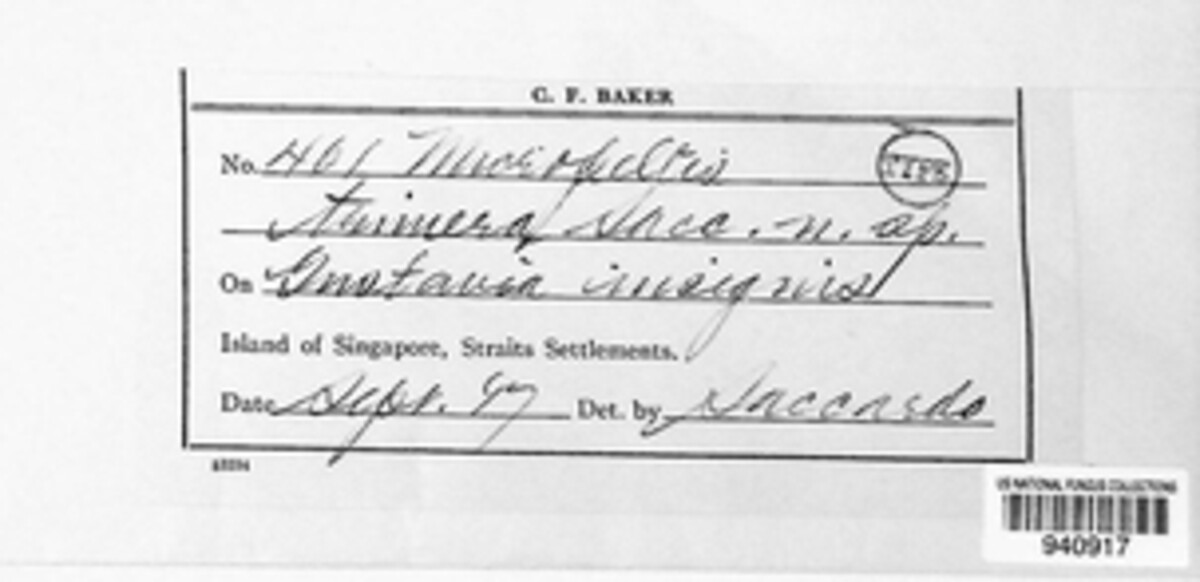 C. F. BAKER
No. 401 Micropeltis TYPE
trimera Sacc. n. sp.
On Gustavia insignis
Island of Singapore, Straits Settlements.
Date Sept. 17 Det. by Saccardo
US NATIONAL FUNGUS COLLECTIONS
940917